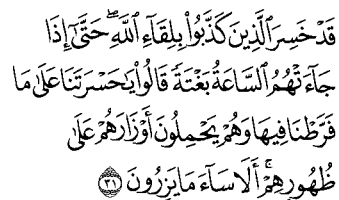 قَدْ خَسِرَ ٱلَّذِينَ كَذَّبُوا۟ بِلِقَآءِ ٱللَّهِ ۖ حَتَّىٰٓ إِذَا
جَآءَتْهُمُ ٱلسَّاعَةُ بَغْتَةً قَالُوا۟ يَٰحَسْرَتَنَا عَلَىٰ مَا
فَرَّطْنَا فِيهَا وَهُمْ يَحْمِلُونَ أَوْزَارَهُمْ عَلَىٰ
ظُهُورِهِمْ ۚ أَلَا سَآءَ مَا يَزِرُونَ ٣١